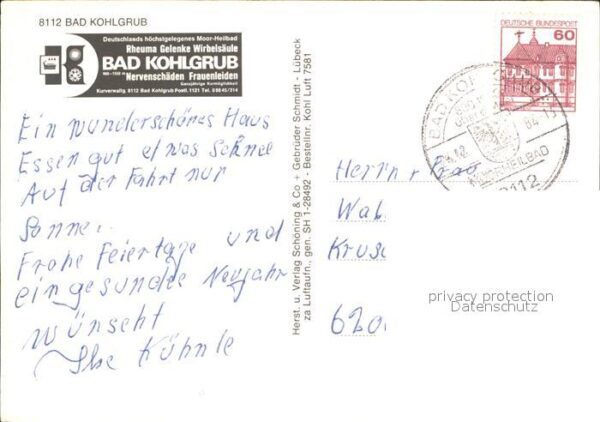 8112 BAD KOHLGRUB
Deutschlands höchstgelegenes Moor-Heilbad
Rheuma Gelenke Wirbelsäule
BAD KOHLGRUB
Nervenschäden Frauenleiden
Ganzjährige Kurmöglichkeit
Kurverwaltg. 8112 Bad Kohlgrub Postf. 1121 Tel. 08845/214
DEUTSCHE BUNDESPOST
60
BAD KOHLGRUB
84-13
MOORHEILBAD
8112
Ein wunderschönes Haus
Essen gut etwas Schnee
Auf der Fahrt nur
Sonne.
Frohe Feiertage und
ein gesundes Neujahr
wünscht
Ilse Kühnle
Herst. u. Verlag Schöning & Co + Gebrüder Schmidt - Lübeck
za Luftaufn., gen. SH 1-28492 - Bestellnr. Kohl Luft 7581
Herrn + Frau
Wab
Krus
620
privacy protection
Datenschutz